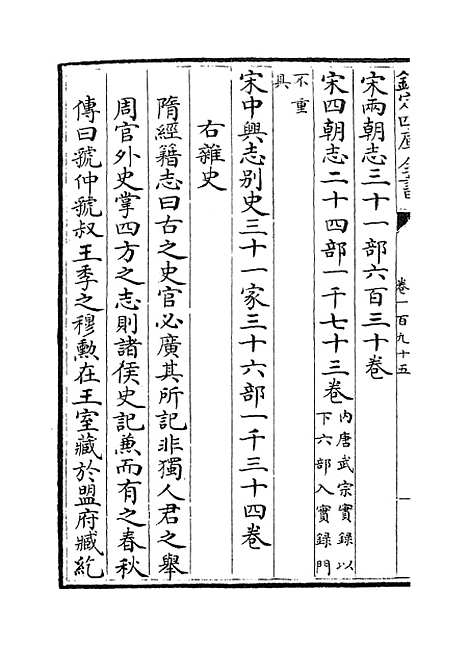 欽定四庫全書
卷一百九十五
宋兩朝志三十一部六百三十卷
宋四朝志二十四部一千七十三卷内唐武宗實録以
下六部入實録門
不重
具
宋中興志别史三十一家三十六部一千三十四卷
右雜史
隋經籍志曰古之史官必廣其所記非獨人君之舉
周官外史掌四方之志則諸侯史記兼而有之春秋
傳曰虢仲虢叔王季之穆勲在王室藏於盟府臧紇